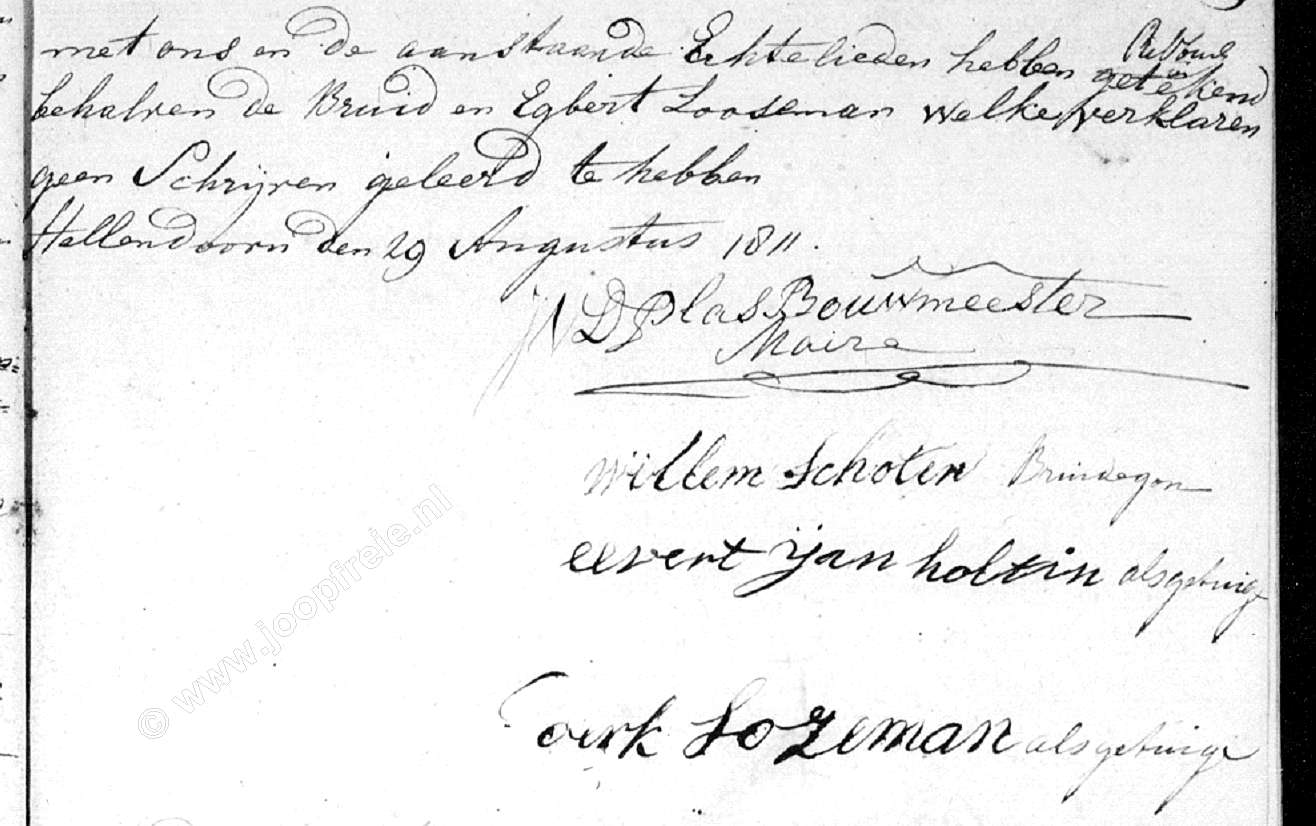 met ons en de aanstaande Echtelieden hebben getekend
en
behalven de Bruid en Egbert Looseman welke verklaren
geen Schrijven geleerd te hebben
Hellendoorn den 29 Augustus 1811.
D Plas Bouwmeester
Maire
willem Schoten Bruidegom
eevert ijan holtin als getuige
derk Lozeman als getuige
© www.joopfreie.nl